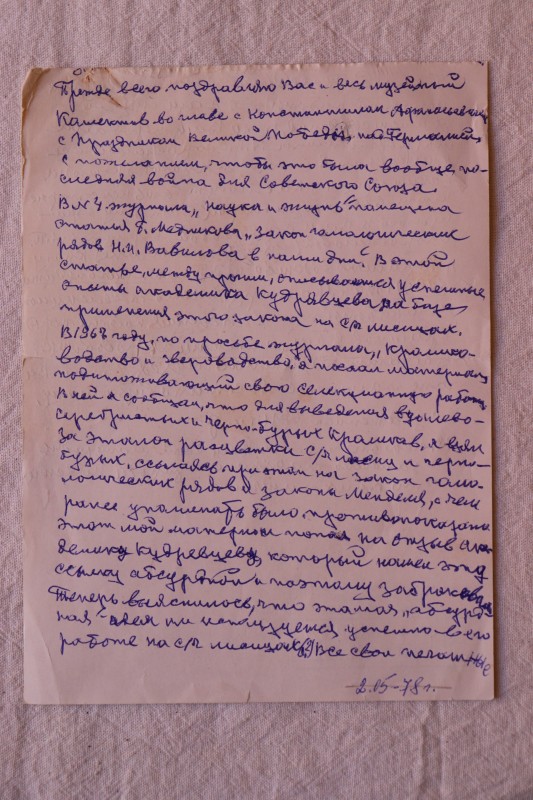 Прежде всего поздравляю Вас и весь музейный
Коллектив во главе с Константином Афанасьевичем
с Праздником Великой Победы над Германией
с пожеланием, чтобы это была вообще, по-
следняя война для Советского Союза
В № 4 журнала „Наука и жизнь" помещена
статья Б. Медникова „Закон гомологических
рядов Н.И. Вавилова в наши дни". В этой
статье, между прочим, описываются успешные
опыты академика Кудрявцева на базе
применения этого закона на с/ч лисицах.
В 1968 году, по просьбе журнала „Кролико-
водство и звероводство", я послал материал
подитоживающий свою селекционную работу
В ней я сообщал, что для выведения вуалево-
серебристых и черно-бурых кроликов, я взял
за эталон расцветки с/ч лисиц и черно-
бурых, ссылаясь при этом на закон гомо-
логических рядов и законы Менделя, о чем
ранее упоминать было противопоказано
Этот мой материал попал на отзыв ака-
демику Кудревцеву, который нашел эту
ссылку абсурдной и поэтому забраковал
Теперь выяснилось, что эта моя „абсурд
ная" идея им используется успешно в его
работе на с/ч лисицах(?) Все свои печатные
2.05-78 г.